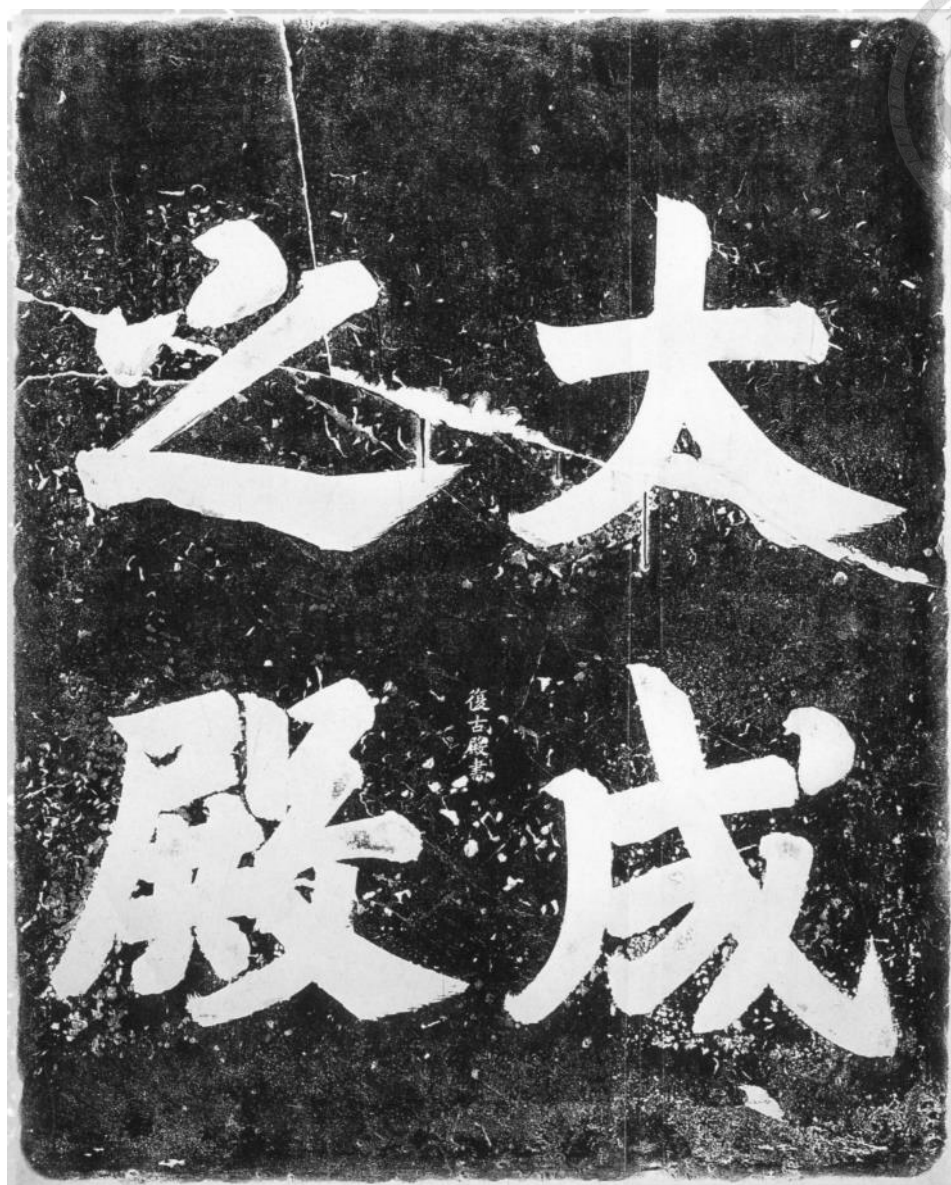 大成
之殿
復古殿書